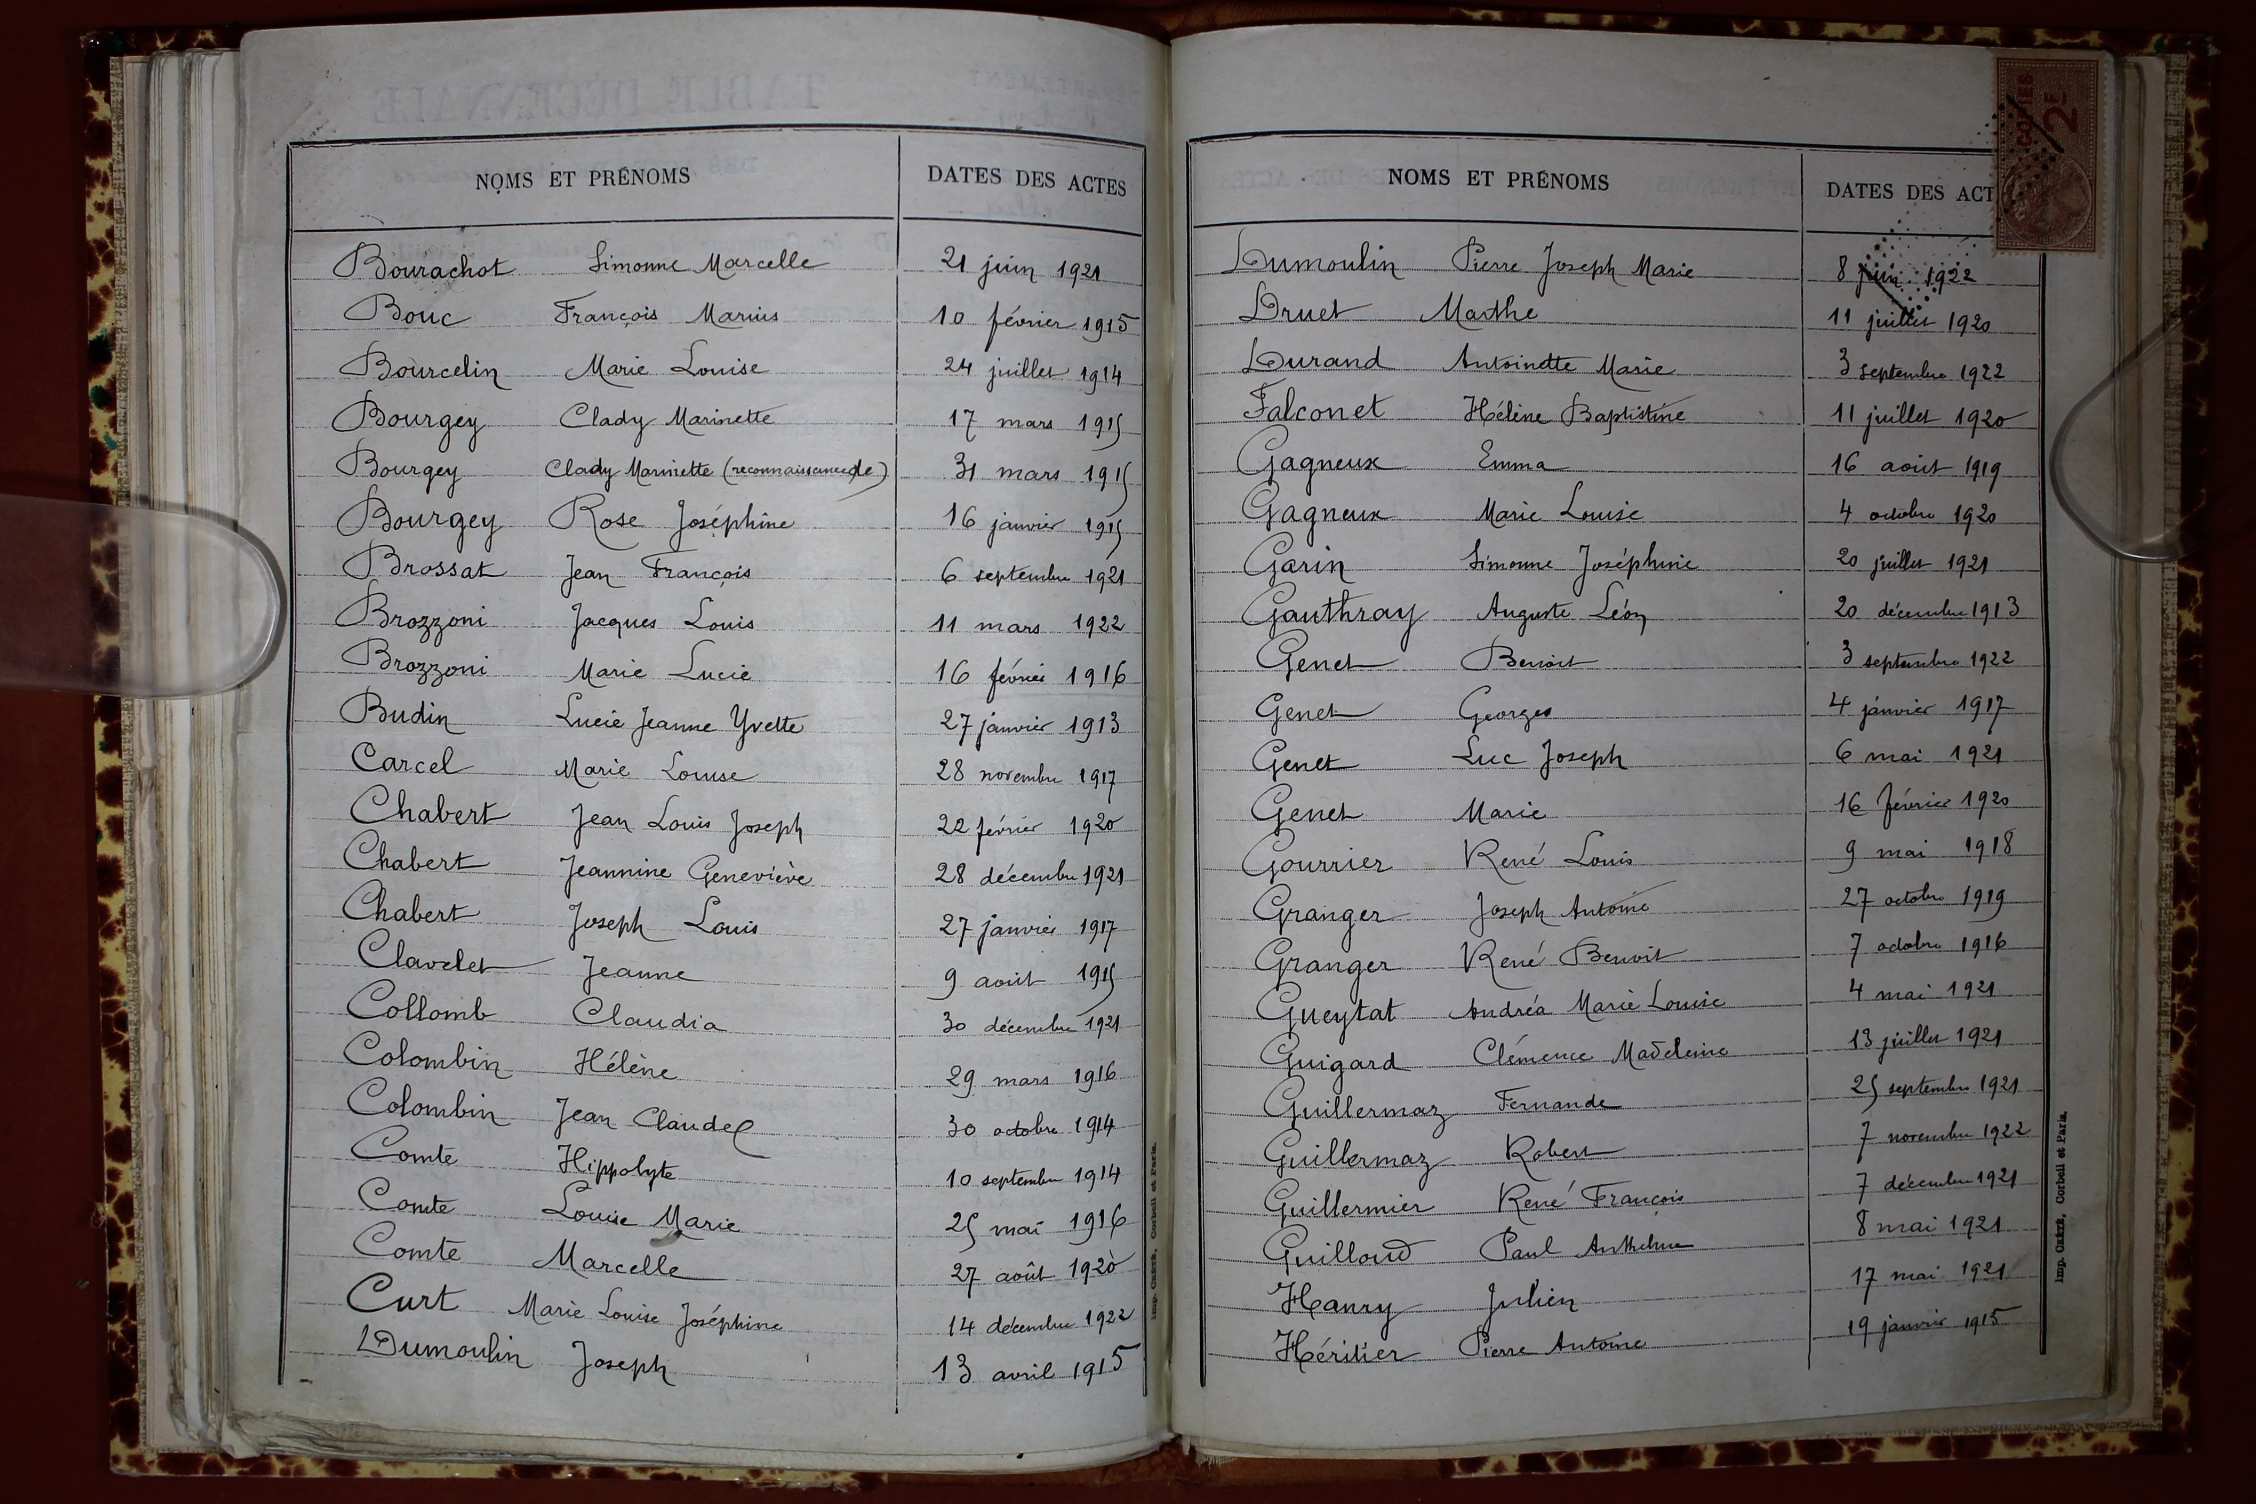 NOMS ET PRÉNOMS DATES DES ACTES
Bourachot Simonne Marcelle 21 juin 1921
Bouc François Marius 10 février 1915
Bourcelin Marie Louise 24 juillet 1914
Bourgey Clady Marinette 17 mars 1915
Bourgey Clady Marinette (reconnaissance de) 31 mars 1915
Bourgey Rose Joséphine 16 janvier 1915
Brossat Jean François 6 septembre 1921
Brozzoni Jacques Louis 11 mars 1922
Brozzoni Marie Lucie 16 février 1916
Budin Lucie Jeanne Yvette 27 janvier 1913
Carcel Marie Louise 28 novembre 1917
Chabert Jean Louis Joseph 22 février 1920
Chabert Jeannine Geneviève 28 décembre 1921
Chabert Joseph Louis 27 janvier 1917
Clavelet Jeanne 9 août 1915
Collomb Claudia 30 décembre 1921
Colombin Hélène 29 mars 1916
Colombin Jean Claude 30 octobre 1914
Comte Hippolyte 10 septembre 1914
Comte Louise Marie 25 mai 1916
Comte Marcelle 27 août 1920
Curt Marie Louise Joséphine 14 décembre 1922
Dumoulin Joseph 13 avril 1915
Imp. Crété, Corbeil et Paris.
NOMS ET PRÉNOMS DATES DES ACT
2F
Dumoulin Pierre Joseph Marie 8 juin 1922
Druet Marthe 11 juillet 1920
Durand Antoinette Marie 3 septembre 1922
Falconet Hélène Baptistine 11 juillet 1920
Gagneux Emma 16 août 1919
Gagneux Marie Louise 4 octobre 1920
Garin Simonne Joséphine 20 juillet 1921
Gauthray Auguste Léon 20 décembre 1913
Genet Benoit 3 septembre 1922
Genet Georges 4 janvier 1917
Genet Luc Joseph 6 mai 1921
Genet Marie 16 février 1920
Gourrier René Louis 9 mai 1918
Granger Joseph Antoine 27 octobre 1919
Granger René Benoit 7 octobre 1916
Gueytat Andréa Marie Louise 4 mai 1921
Guigard Clémence Madeleine 13 juillet 1921
Guillermaz Fernande 25 septembre 1921
Guillermaz Robert 7 novembre 1922
Guillermier René François 7 décembre 1921
Guilloud Paul Anthelme 8 mai 1921
Hanry Julien 17 mai 1921
Héritier Pierre Antoine 19 janvier 1915
Imp. Crété, Corbeil et Paris.